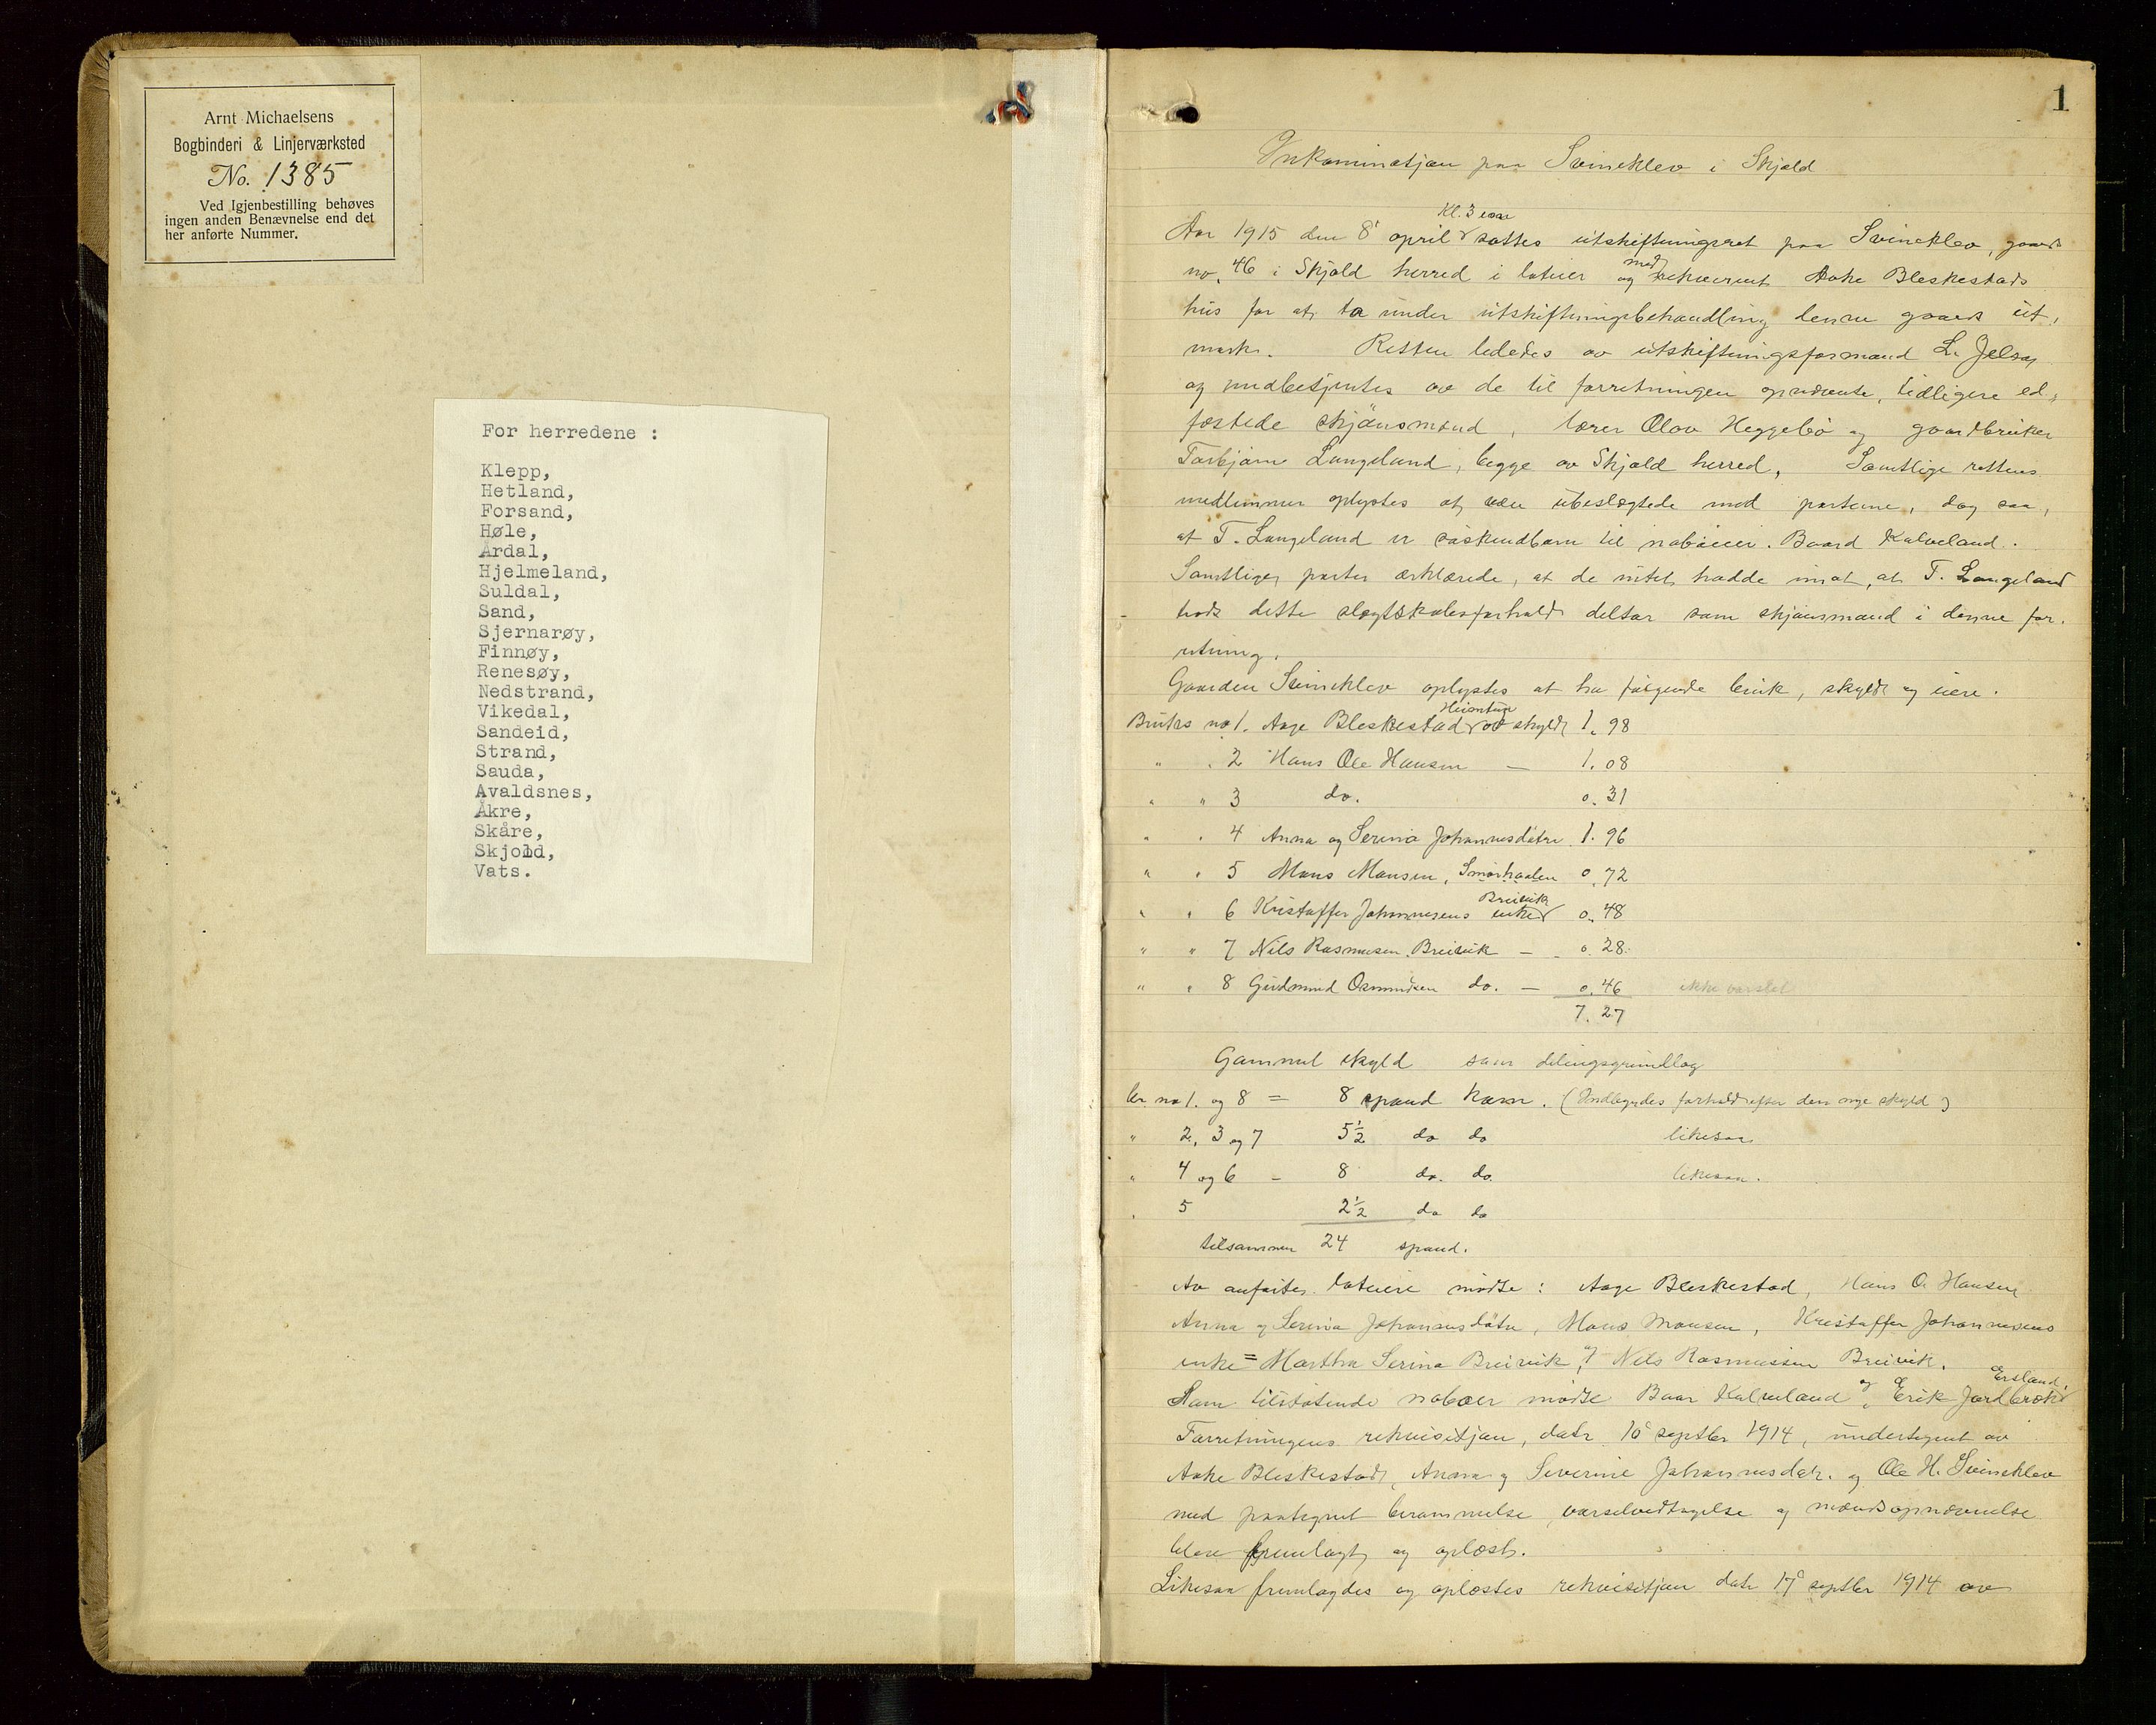 Arnt Michaelsens
Bogbinderi & Linjerværksted
No. 1385
Ved Igjenbestilling behøves
ingen anden Benævnelse end det
her anførte Nummer.
For herredene :
Klepp,
Hetland,
Forsand,
Høle,
Årdal,
Hjelmeland,
Suldal,
Sand,
Sjernarøy,
Finnøy,
Renesøy,
Nedstrand,
Vikedal,
Sandeid,
Strand,
Sauda,
Avaldsnes,
Åkre,
Skåre,
Skjold,
Vats.
1
paa Svineklev i Skjold
Kl. 3 em
Aar 1915 den 8' april sattes utskiftningsret paa Svineklev, gaards
no. 46 i Skjold herred i loteier og medrekvirent Aake Bleskestads
hus for at ta under utskiftningsbehandling denne gaards ut,
mark. Retten lededes av utskiftningsformand L. Jelsa
og medbetjentes av de til forretningen opnævnte, tidligere ed,
fæstede skjønsmænd, lærer Olav Heggebö og gaardbruker
Torbjørn Langeland, begge av Skjold herred. Samtlige rettens
medlemmer oplystes at være ubeslegtede med parterne, dog saa,
at T. Langeland er søskendbarn til naboeier Baard Kalveland.
Samtlige parter erklærede, at de intet hadde imot, at T. Langeland
trods dette slegtskabsforhold deltar som skjønsmand i denne for,
retning.
Gaarden Svineklev oplystes at ha følgende bruk, skyld og eiere.
Bruks no 1. Aage Bleskestad av skyld 1. 98
" " 2 Hans Ole Hansen — 1. 08
" " 3 do. 0. 31
" " 4 Anna og Serina Johannesdøtre 1. 96
" " 5 Mons Monsen, Smørhaalen 0. 72
" " 6 Kristoffer Johannesens enke Breivik 0. 48
" " 7 Nils Rasmussen Breivik — 0. 28
" " 8 Gudmund Osmundsen do. — 0. 46 ikke varslet
7. 27
Gammel skyld som delingsgrundlag
br. no 1. og 8 = 8 spand korn. (Indbyrdes forhold efter den nye skyld)
" 2, 3 og 7 5½ do do likesaa
" 4 og 6 - 8 do. do. likesaa.
" 5 2½ do do
tilsammen 24 spand.
Av anførte loteiere mødte: Aage Bleskestad, Hans O. Hansen
Anna og Serina Johannesdøtre, Mons Monsen, Kristoffer Johannesens
enke = Martha Serina Breivik, og Nils Rasmussen Breivik.
Som tilstøtende naboer mødte Baar Kalveland og Erik Jordbræk Ersland.
Forretningens rekvisitjon, datr. 10 septbr 1914, undertegnet av
Aake Bleskestad, Anna og Severine Johannesdtr. og Ole H. Svineklev
med paategnet berammelse, varselvedtagelse og mændsopnævnelse
blev fremlagt og oplæst.
Likesaa fremlagdes og oplæstes rekvisitjon datr 17 septbr 1914 av